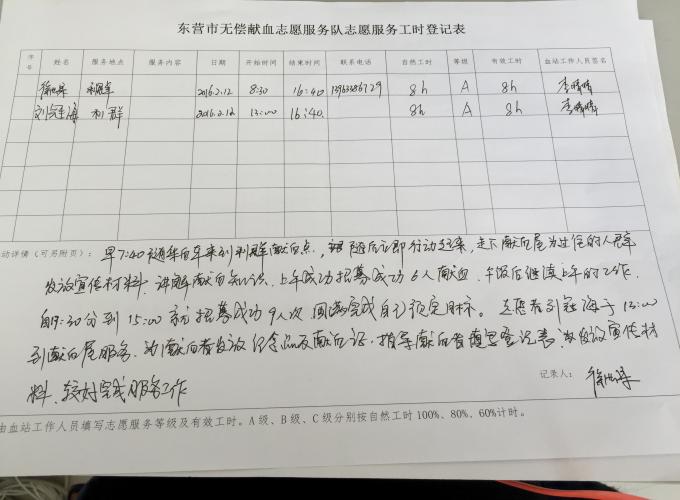 东营市无偿献血志愿服务队志愿服务工时登记表
序号 姓名 服务地点 服务内容 日期 开始时间 结束时间 联系电话 自然工时 等级 有效工时 血站工作人员签名
利群 2016.2.12 8:30 16:40 13963386729 8h A 8h 李晴晴
刘冠海 利群 2016.2.12 13:00 16:40. 8h A 8h 李晴晴
动详情(可另附页): 早7:40随车来到利群献血点,随后立即行动起来,走下献血屋为过往的人群
发放宣传材料,讲解献血知识,上午成功招募成功6人献血,午饭后继续上午的工作
自9:30分到15:00共招募成功9人次 圆满完成自己预定目标。志愿者刘冠海于13:00
到献血屋服务,为献血者发放纪念品及献血证,指导献血者填写登记表,发放宣传材
料,较好完成服务工作
记录人:
由血站工作人员填写志愿服务等级及有效工时。A 级、B 级、C 级分别按自然工时 100%、80%、60%计时。